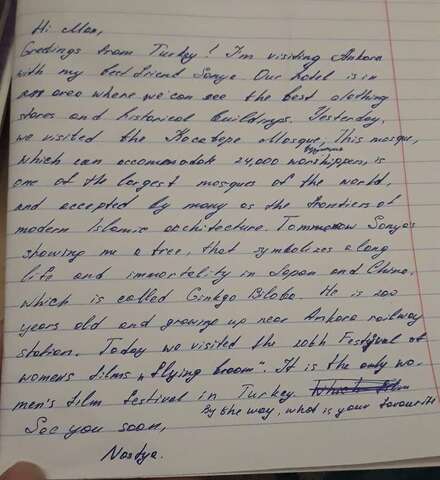 Hi Mom,
Gredings from Turkey! I'm visiding Ankara
with my best friend Sonya. Our hotel is in
an area where we can see the best clothing
stores and historical buildings. Yesterday,
we visited the Kocatepe Mosque. This mosque,
which can accomodate 24,000 worshippers, is
one of the largest mosques of the world,
and accepted by many as the frontiers of
modern Islamic architecture. Tommorow Sonya's
showing me a tree, that symbolizes a long
life and immortality in Japan and China,
which is called Ginkgo Biloba. He is 200
years old and growing up near Ankara railway
station. Today we visited the 20th Festival of
womens films „Flying broom". It is the only wo-
men's film festival in Turkey.
By the way, what is your favourite
See you soon,
Nastya.